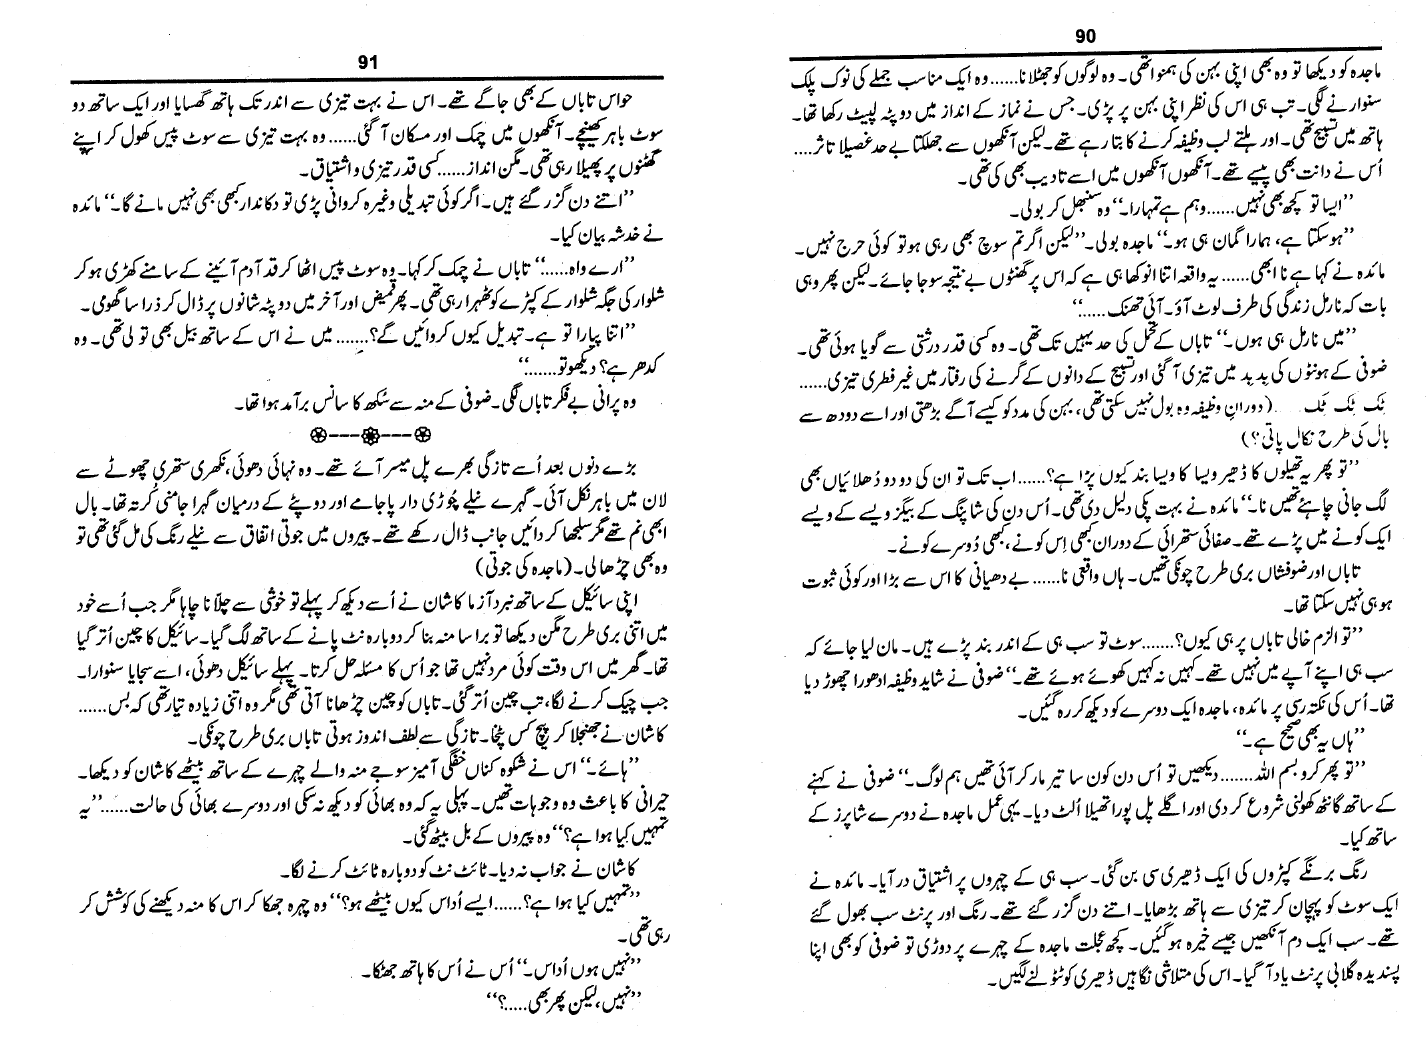 90
ماجدہ کو دیکھا تو وہ بھی اپنی بہن کی ہمنوا تھی۔ وہ لوگوں کو جھٹلانا...... وہ ایک مناسب جملے کی نوک پلک
سنوارنے لگی۔ تب ہی اس کی نظر اپنی بہن پر پڑی۔ جس نے نماز کے انداز میں دوپٹہ لپیٹ رکھا تھا۔
ہاتھ میں تسبیح تھی۔ اور ہلتے لب وظیفہ کرنے کا بتا رہے تھے۔ لیکن آنکھوں سے جھلکتا بے حد غصیلا تاثر....
اُس نے دانت بھی پیسے تھے۔ آنکھوں آنکھوں میں اسے تادیب بھی کی تھی۔
’’ایسا تو کچھ بھی نہیں...... وہم ہے تمہارا۔‘‘ وہ سنبھل کر بولی۔
’’ہوسکتا ہے، ہمارا گمان ہی ہو۔‘‘ ماجدہ بولی۔ ’’لیکن اگر تم سوچ بھی رہی ہو تو کوئی حرج نہیں۔
مائدہ نے کہا ہے نا ابھی...... یہ واقعہ اتنا انوکھا ہی ہے کہ اس پر گھنٹوں بے نتیجہ سوجا جائے۔ لیکن پھر وہی
بات کہ نارمل زندگی کی طرف لوٹ آؤ۔ آئی تھنک......‘‘
’’میں نارمل ہی ہوں۔‘‘ تاباں کے تحمل کی حد یہیں تک تھی۔ وہ کسی قدر درشتی سے گویا ہوئی تھی۔
ضوفی کے ہونٹوں کی بدبد میں تیزی آ گئی اور تسبیح کے دانوں کے گرنے کی رفتار میں غیر فطری تیزی......
ٹِک ٹِک ٹِک ... (دورانِ وظیفہ وہ بول نہیں سکتی تھی، بہن کی مدد کو کیسے آگے بڑھتی اور اسے دودھ سے
بال کی طرح نکال پاتی؟)
’’تو پھر یہ تھیلوں کا ڈھیر ویسا کا ویسا بند کیوں پڑا ہے؟...... اب تک تو ان کی دو دو دُھلائیاں بھی
لگ جانی چاہئے تھیں نا۔‘‘ مائدہ نے بہت پکی دلیل دی تھی۔ اُس دن کی شاپنگ کے بیگز ویسے کے ویسے
ایک کونے میں پڑے تھے۔ صفائی ستھرائی کے دوران کبھی اِس کونے، کبھی دُوسرے کونے۔
تاباں اور ضوفشاں بری طرح چونکی تھیں۔ ہاں واقعی نا...... بے دھیانی کا اس سے بڑا اور کوئی ثبوت
ہو ہی نہیں سکتا تھا۔
’’تو الزم خالی تاباں پر ہی کیوں؟....... سوٹ تو سب ہی کے اندر بند پڑے ہیں۔ مان لیا جائے کہ
سب ہی اپنے آپے میں نہیں تھے۔ کہیں نہ کہیں کھوئے ہوئے تھے۔‘‘ ضوفی نے شاید وظیفہ ادھورا چھوڑ دیا
تھا۔ اُس کی نکتہ رسی پر مائدہ، ماجدہ ایک دوسرے کو دیکھ کر رہ گئیں۔
’’ہاں یہ بھی صحیح ہے۔‘‘
’’تو پھر کرو بسم اللہ....... دیکھیں تو اُس دن کون سا تیر مار کر آئی تھیں ہم لوگ۔‘‘ ضوفی نے کہنے
کے ساتھ گانٹھ کھولنی شروع کر دی اور اگلے پل پورا تھیلا اُلٹ دیا۔ یہی عمل ماجدہ نے دوسرے شاپرز کے
ساتھ کیا۔
رنگ برنگے کپڑوں کی ایک ڈھیری سی بن گئی۔ سب ہی کے چہروں پر اشتیاق در آیا۔ مائدہ نے
ایک سوٹ کو پہچان کر تیزی سے ہاتھ بڑھایا۔ اتنے دن گزر گئے تھے۔ رنگ اور پرنٹ سب بھول گئے
تھے۔ سب ایک دم آنکھیں جیسے خیرہ ہوگئیں۔ کچھ عجلت ماجدہ کے چہرے پر دوڑی تو ضوفی کو بھی اپنا
پسندیدہ گلابی پرنٹ یاد آ گیا۔ اس کی متلاشی نگاہیں ڈھیری کو ٹٹولنے لگیں۔
91
حواس تاباں کے بھی جاگے تھے۔ اس نے بہت تیزی سے اندر تک ہاتھ گھسایا اور ایک ساتھ دو
سوٹ باہر کھینچے۔ آنکھوں میں چمک اور مسکان آ گئی...... وہ بہت تیزی سے سوٹ پیس کھول کر اپنے
گھٹنوں پر پھیلا رہی تھی۔ مگن انداز...... کسی قدر تیزی و اشتیاق۔
’’اتنے دن گزر گئے ہیں۔ اگر کوئی تبدیلی وغیرہ کروانی پڑی تو دکاندار کبھی بھی نہیں مانے گا۔‘‘ مائدہ
نے خدشہ بیان کیا۔
’’ارے واہ......‘‘ تاباں نے چمک کر کہا۔ وہ سوٹ پیس اٹھا کر قد آدم آئینے کے سامنے کھڑی ہو کر
شلوار کی جگہ شلوار کے کپڑے کو ٹھہرا رہی تھی۔ پھر قمیض اور آخر میں دوپٹہ شانوں پر ڈال کر ذرا سا گھومی۔
’’اتنا پیارا تو ہے۔ تبدیل کیوں کروائیں گے؟....... میں نے اس کے ساتھ بیل بھی تو لی تھی۔ وہ
کدھر ہے؟ دیکھو تو.......‘‘
وہ پرانی بے فکر تاباں لگی۔ ضوفی کے منہ سے سُکھ کا سانس برآمد ہوا تھا۔
بڑے دنوں بعد اُسے تازگی بھرے پل میسر آئے تھے۔ وہ نہائی دھوئی، نکھری ستھری چھوٹے سے
لان میں باہر نکل آئی۔ گہرے نیلے چُوڑی دار پاجامے اور دوپٹے کے درمیان گہرا جامنی کُرتہ تھا۔ بال
ابھی نم تھے مگر سلجھا کر دائیں جانب ڈال رکھے تھے۔ پیروں میں جوتی اتفاق سے نیلے رنگ کی مل گئی تھی تو
وہ بھی چڑھا لی۔ (ماجدہ کی جوتی)
اپنی سائیکل کے ساتھ نبرد آزما کاشان نے اُسے دیکھ کر پہلے تو خوشی سے چلّانا چاہا مگر جب اُسے خود
میں اتنی بری طرح مگن دیکھا تو برا سا منہ بنا کر دوبارہ نٹ پانے کے ساتھ لگ گیا۔ سائیکل کا چین اُتر گیا
تھا۔ گھر میں اس وقت کوئی مرد نہیں تھا جو اُس کا مسئلہ حل کرتا۔ پہلے سائیکل دھوئی، اسے سجایا سنوارا۔
جب چیک کرنے لگا، تب چین اُتر گئی۔ تاباں کو چین چڑھانا آتی تھی مگر وہ اتنی زیادہ تیار تھی کہ بس......
کاشان نے جھنجلا کر پیچ کس پٹخا۔ تازگی سے لطف اندوز ہوتی تاباں بری طرح چونکی۔
’’ہائے۔‘‘ اس نے شکوہ کناں خفگی آمیز سوجے منہ والے چہرے کے ساتھ بیٹھے کاشان کو دیکھا۔
حیرانی کا باعث دو وجوہات تھیں۔ پہلی یہ کہ وہ بھائی کو دیکھ نہ سکی اور دوسرے بھائی کی حالت......’’یہ
تمہیں کیا ہوا ہے؟‘‘ وہ پیروں کے بل بیٹھ گئی۔
کاشان نے جواب نہ دیا۔ ٹائٹ نٹ کو دوبارہ ٹائٹ کرنے لگا۔
’’تمہیں کیا ہوا ہے؟...... ایسے اُداس کیوں بیٹھے ہو؟‘‘ وہ چہرہ جھکا کر اس کا منہ دیکھنے کی کوشش کر
رہی تھی۔
’’نہیں ہوں اُداس۔‘‘ اُس نے اُس کا ہاتھ جھٹکا۔
’’نہیں، لیکن پھر بھی.....؟‘‘